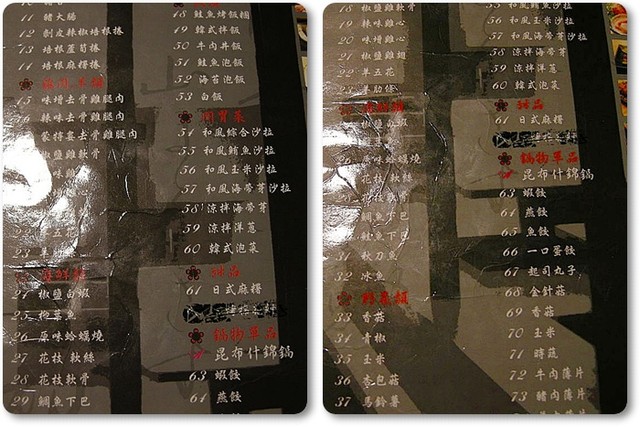 11 豬大腸
12 剝皮辣椒培根捲
13 培根蘆筍捲
14 培根麻糬捲
15 味增去骨雞腿肉
16 辣味去骨雞腿肉
蒙檸檬去骨雞腿肉
椒鹽雞軟骨
22 羊五花
椒鹽白蝦
26 原味蛤蠣燒
27 花枝軟絲
28 花枝軟骨
29 鯛魚下巴
48 鮭魚烤飯糰
49 韓式拌飯
50 牛肉丼飯
51 鮭魚泡飯
52 海苔泡飯
53 白飯
開胃菜
54 和風綜合沙拉
55 和風鮪魚沙拉
56 和風玉米沙拉
57 和風海帶芽沙拉
58 涼拌海帶芽
59 涼拌洋蔥
60 韓式泡菜
甜品
61 日式麻糬
鍋物單品
昆布什錦鍋
63 蝦餃
64 燕餃
18 椒鹽雞軟骨
19 辣味雞心
20 味噌雞心
21 椒鹽雞翅
22 羊五花
23 羊肋條
椒鹽白蝦
原味蛤蠣燒
花枝軟絲
花枝軟骨
鯛魚下巴
31 秋刀魚
32 冰魚
野菜類
33 香菇
34 青椒
35 玉米
36 杏包菇
37 馬鈴薯
56 和風玉米沙拉
57 和風海帶芽沙拉
58 涼拌海帶芽
59 涼拌洋蔥
60 韓式泡菜
甜品
61 日式麻糬
鍋物單品
昆布什錦鍋
63 蝦餃
64 燕餃
65 魚餃
66 一口蛋餃
67 起司丸子
68 金針菇
69 香菇
70 玉米
71 時蔬
72 牛肉薄片
73 豬肉薄片